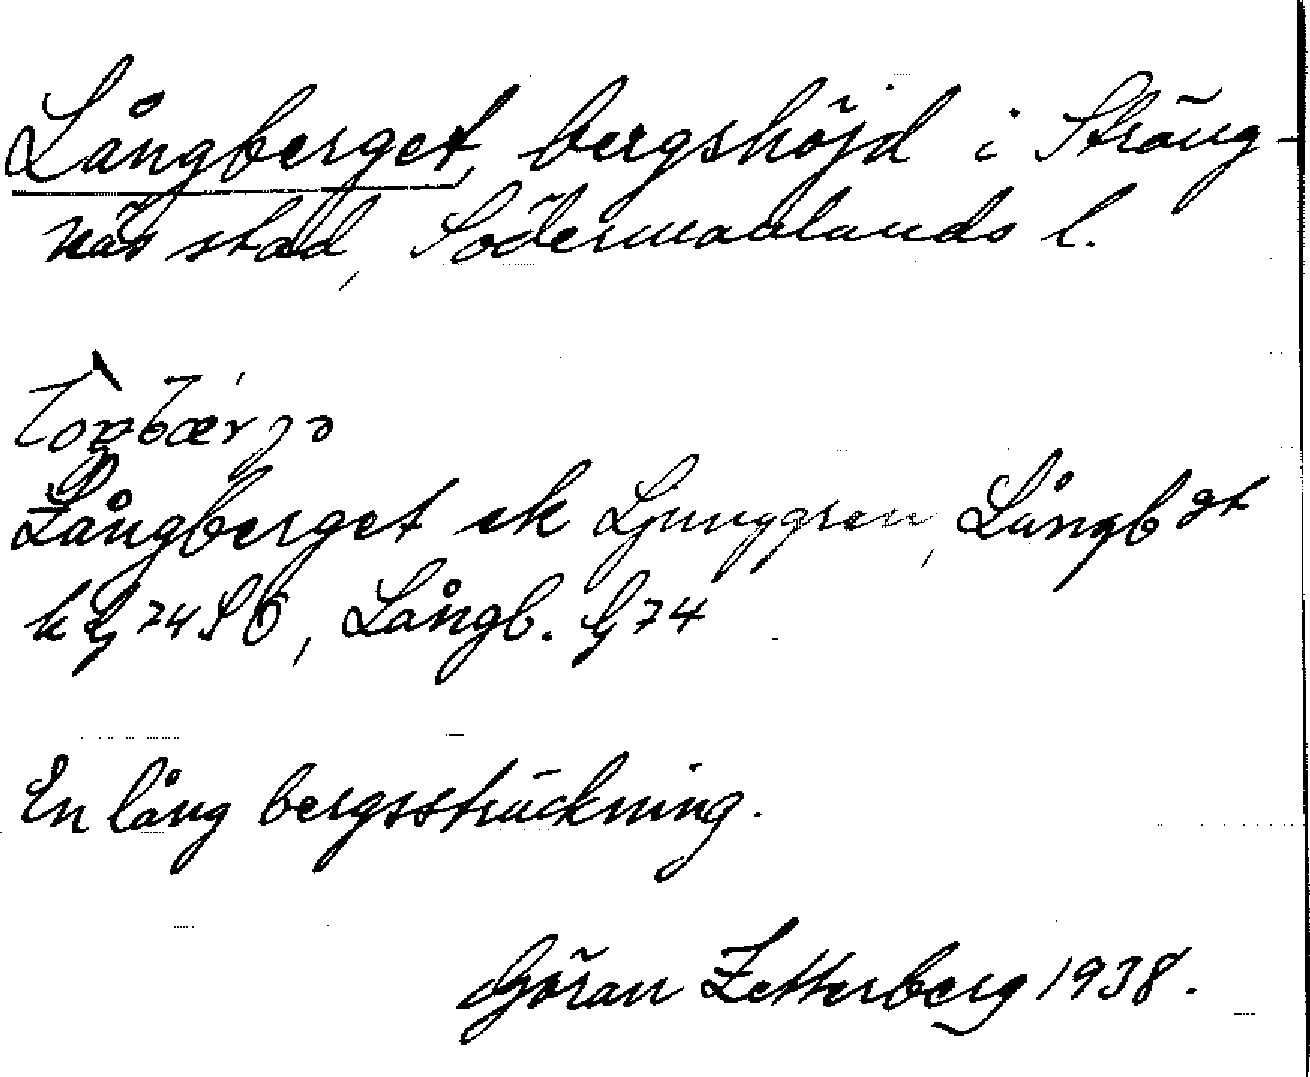 Långberget, bergshöjd i Sträng-
näs stad, Södermanlands l.
Långberget ek Ljunggren, Långb gt
k G 74 SÖ, Långb. G 74
En lång bergssträckning.
Göran Zetterberg 1938.